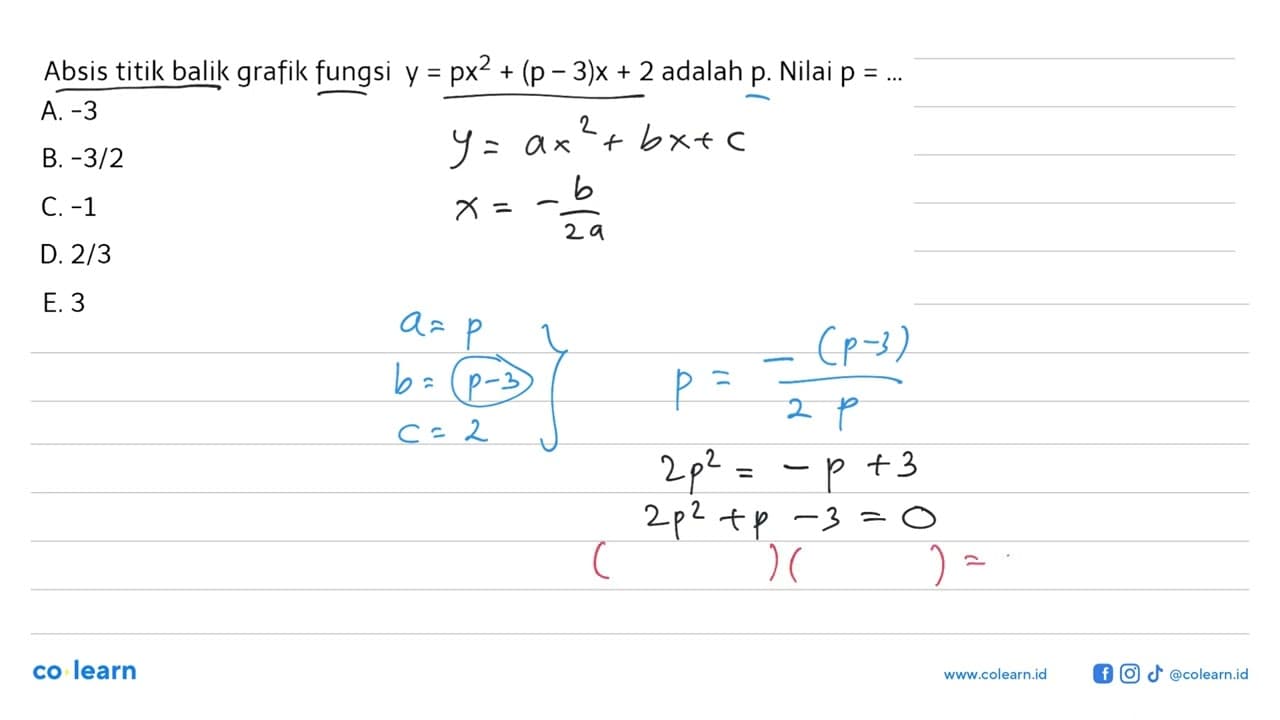 Absis titik balik grafik fungsi y = px² + (p – 3)x + 2 adalah p. Nilai p = ...
A. -3
B. -3/2
C. -1
D. 2/3
E. 3
y = ax² + bx + c
x = - b/2a
a = p
b = (p-3)
c = 2
p = -(p-3)/2p
2p² = - p + 3
2p² + p - 3 = 0
( )( ) =
co learn
www.colearn.id
@colearn.id